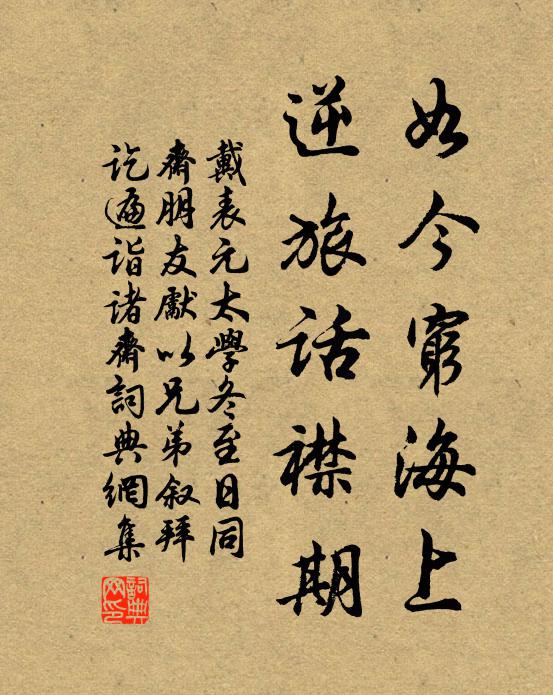 如今窮海上
逆旅話襟期
戴表元太學冬至日同
齋朋友獻以兄弟叙拜
訖遍詣諸齋詞典網集
詞典網印